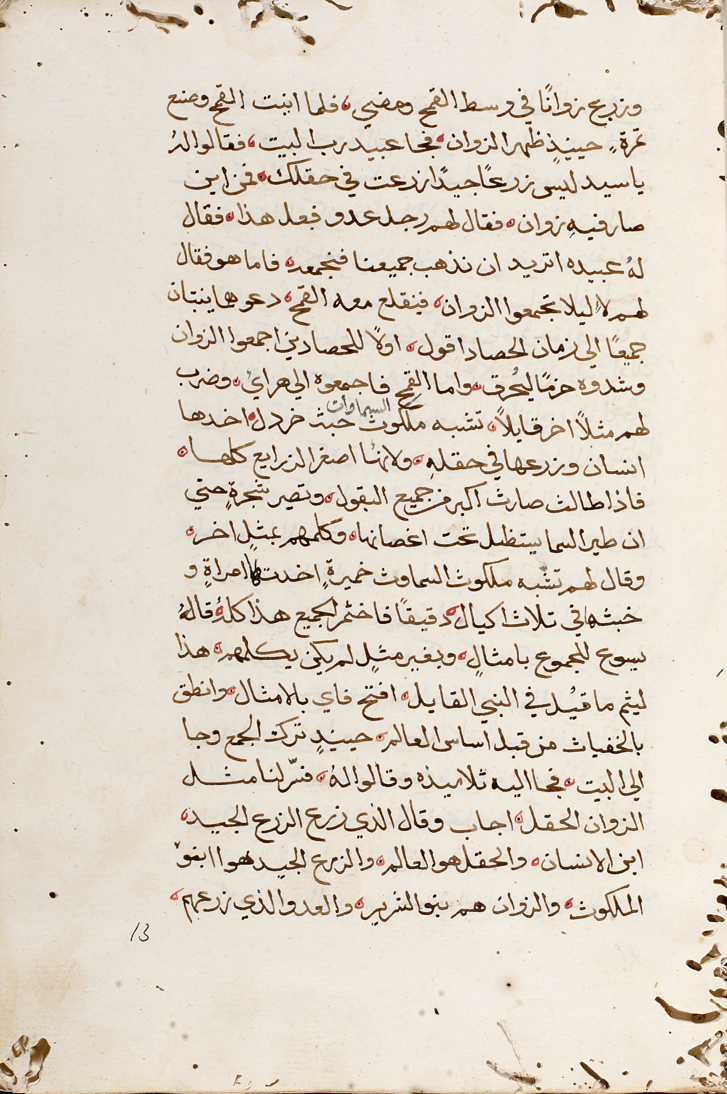 وزرع زوانًا في وسط القمح ومضي، فلما انبت القمح وصنع
ثمرة، حينيذٍ ظهر الزوان، فجا عبيد رب البيت، فقالوا لهُ
ياسيد ليس زرعًا جيدًا زرعت في حقلك، فمن اين
صار فيهِ زوان، فقال لهم رجل عدو فعل هذا، فقال
لهُ عبيده اتريد ان نذهب جميعنا فنجمعه، فاما هو فقال
لهم لا ليلا تجمعوا الزوان، فينقلع معه القمح، دعوهما ينبتان
جميعًا الي زمان الحصاد اقول، اولًا للحصادين اجمعوا الزوان
وشدوه حزمًا ليُحرق، واما القمح فاجمعوه الي هراي، وضرب
لهم مثلًا اخر قايلًا، تشبه ملكوت السماوات حبث خردل، اخدها
انسان وزرعها في حقلهِ، ولانها اصغر الزرايع كلها،
فاذا طالت صارت اكبر من جميع البقول، وتصير شجرةٍ حتي
ان طير السما يستظل تحت اغصانها، وكلمهم بمثلٍ اخر،
وقال لهم تشبه ملكوث السماوث خميرةٍ اخدتها امراةٍ و
خبثها في تلاث اكيال، دقيقًا فاختمر الجميع هذا كلهُ، قالهُ
يسوع للجموع بامثالٍ، وبغير مثلٍ لم يكن يكلمهم، هذا
ليتم ما قيل في النبي القايل، افتح فاي بالامثال، وانطق
بالخفيات من قبل اساس العالم، حينيذٍ ترك الجمع وجا
الي البيت، فجا اليه تلاميذه وقالوا لهُ، فسّر لنا مثل
الزوان الحقل، اجاب وقال الذي زرع الزرع الجيد،
ابن الانسان، والحقل هو العالم، والزرع الجيد هوا ابنو
الملكوث، والزوان هم بنو الشرير، والعدو الذي زرعهم،
13